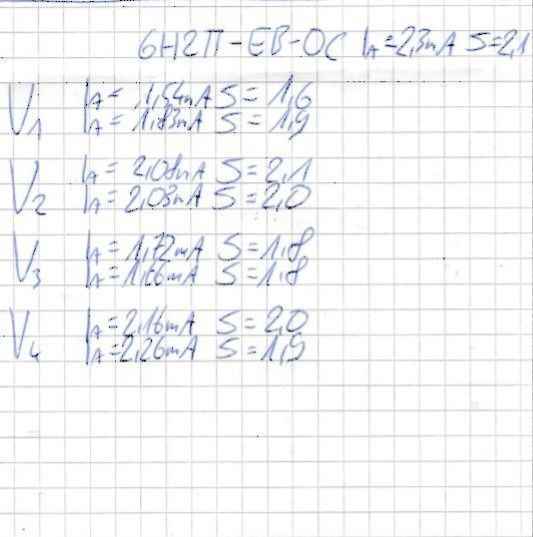 6Н2П-ЕВ-ОС IA=2,3mA S=2,1
V1 IA= 1,54mA S= 1,6
IA= 1,83mA S= 1,9
V2 IA= 2,08mA S= 2,1
IA= 2,03mA S= 2,0
V3 IA= 1,72mA S=1,8
IA=1,66mA S=1,8
V4 IA=2,16mA S=2,0
IA=2,26mA S=1,9